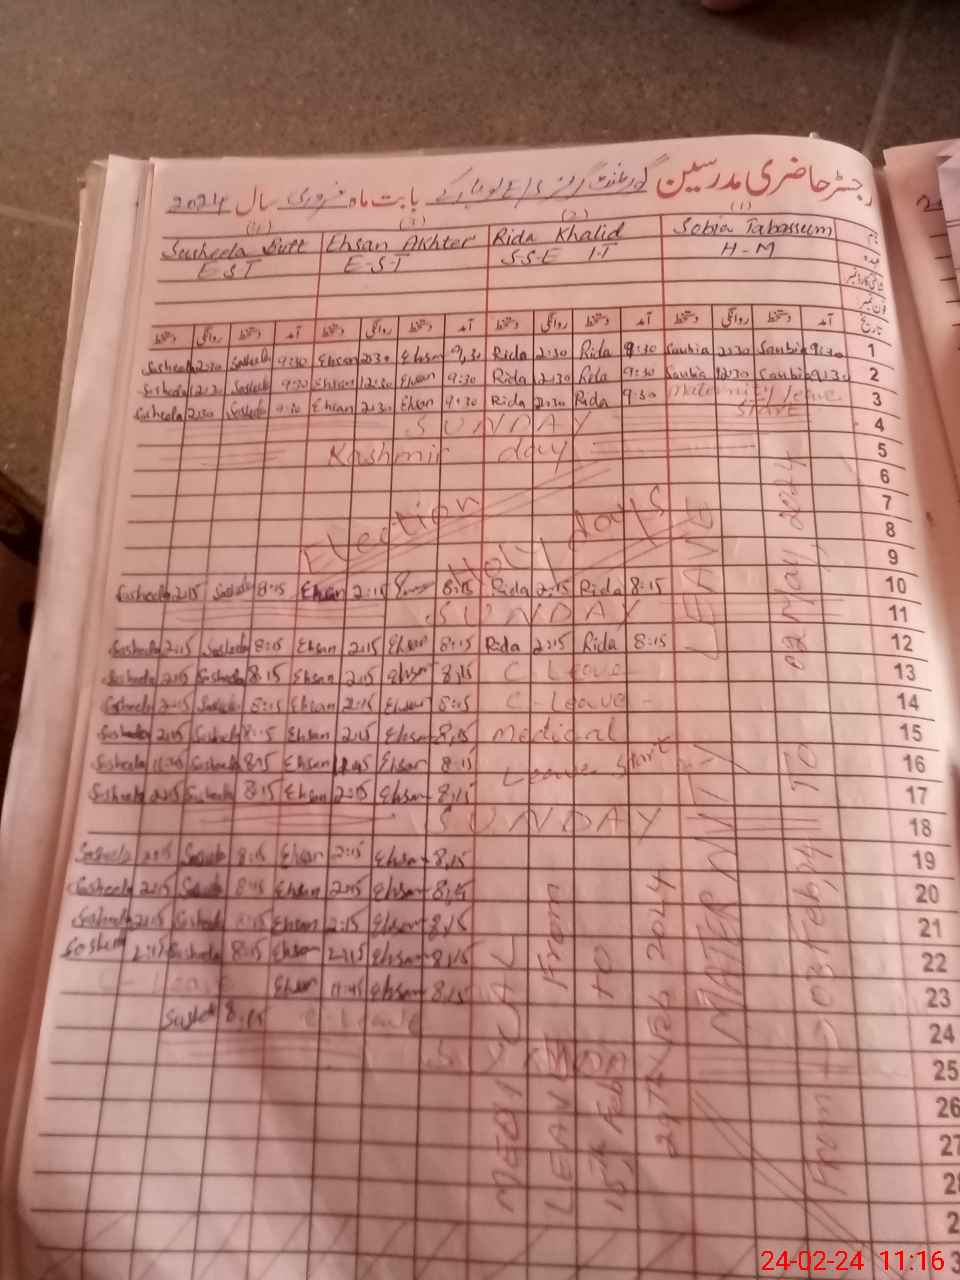 رجسٹر حاضری مدرسین گورنمنٹ بابت ماہ فروری سال 2024
(4) (3) (2) (1)
Susheela Butt Ehsan Akhter Rida Khalid Sobia Tabassum نام
E.S.T E-S-T S-S-E I-T H-M عہدہ
شناختی کارڈ نمبر
فون نمبر
دستخط روانگی دستخط آمد دستخط روانگی دستخط آمد دستخط روانگی دستخط آمد دستخط روانگی دستخط آمد تاریخ
Susheela 2:30 Susheela 9:30 Ehsan 2:30 Ehsan 9:30 Rida 2:30 Rida 9:30 Saubia 2:30 Saubia 9:30 1
Susheela 12:30 Susheela 9:30 Ehsan 12:30 Ehsan 9:30 Rida 12:30 Rida 9:30 Saubia 12:30 Saubia 9:30 2
Susheela 2:30 Susheela 9:30 Ehsan 2:30 Ehsan 9:30 Rida 2:30 Rida 9:30 Maternity leave 3
SUNDAY 4
Kashmir day 5
6
Election Holy days 7
8
9
Susheela 2:15 Susheela 8:15 Ehsan 2:15 8:15 Rida 2:15 Rida 8:15 10
SUNDAY 11
Susheela 2:15 Susheela 8:15 Ehsan 2:15 Ehsan 8:15 Rida 2:15 Rida 8:15 12
Susheela 2:15 Susheela 8:15 Ehsan 2:15 Ehsan 8:15 C Leave 13
Susheela 2:15 Susheela 8:15 Ehsan 2:15 Ehsan 8:15 C-Leave- 14
Susheela 2:15 Susheela 8:15 Ehsan 2:15 Ehsan 8:15 Medical 15
Susheela 11:45 Susheela 8:15 Ehsan 11:45 Ehsan 8:15 Leave Start 16
Susheela 2:15 Susheela 8:15 Ehsan 2:15 Ehsan 8:15 17
SUNDAY 18
Susheela 2:15 Susheela 8:15 Ehsan 2:15 Ehsan 8:15 19
Susheela 2:15 Susheela 8:15 Ehsan 2:15 Ehsan 8:15 20
Susheela 2:15 Susheela 8:15 Ehsan 2:15 Ehsan 8:15 21
Susheela 2:15 Susheela 8:15 Ehsan 2:15 Ehsan 8:15 22
C- Leave Ehsan 11:45 Ehsan 8:15 23
Susheela 8:15 C-Leave 24
SUNDAY 25
26
27
28
MEDICAL
LEAVE From
15th Feb TO
29th Feb 2024
MATERNITY LEAVE
From 03 Feb, 24 TO 02 May 2024
24-02-24 11:16